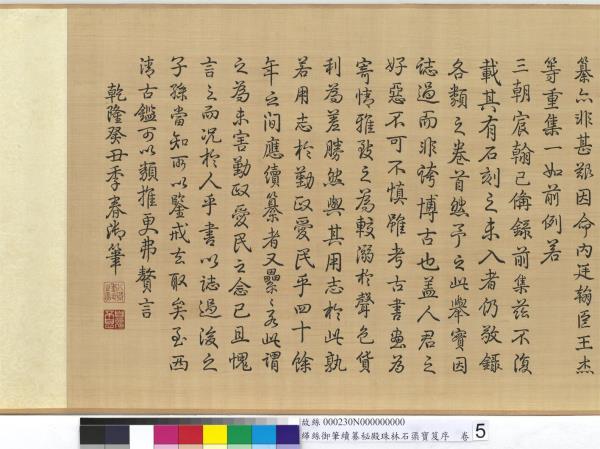 纂亦非甚難因命內廷翰臣王杰
等重集一如前例若
三朝宸翰已備錄前集茲不復
載其有石刻之未入者仍敬錄
各類之卷首然予之此舉實因
誌過而非誇博古也蓋人君之
好惡不可不慎雖考古書畫為
寄情雅致之為較溺於聲色貨
利為差勝然與其用志於此孰
若用志於勤政愛民乎四十餘
年之間應續纂者又累累若此謂
之為未害勤政愛民之念已且愧
言之而況於人乎書以誌過後之
子孫當知所以鑒戒去取矣至西
清古鑑可以類推更弗贅言
乾隆癸丑季春御筆
故絲 000230N000000000
緙絲御筆續纂祕殿珠林石渠寶笈序 卷
5